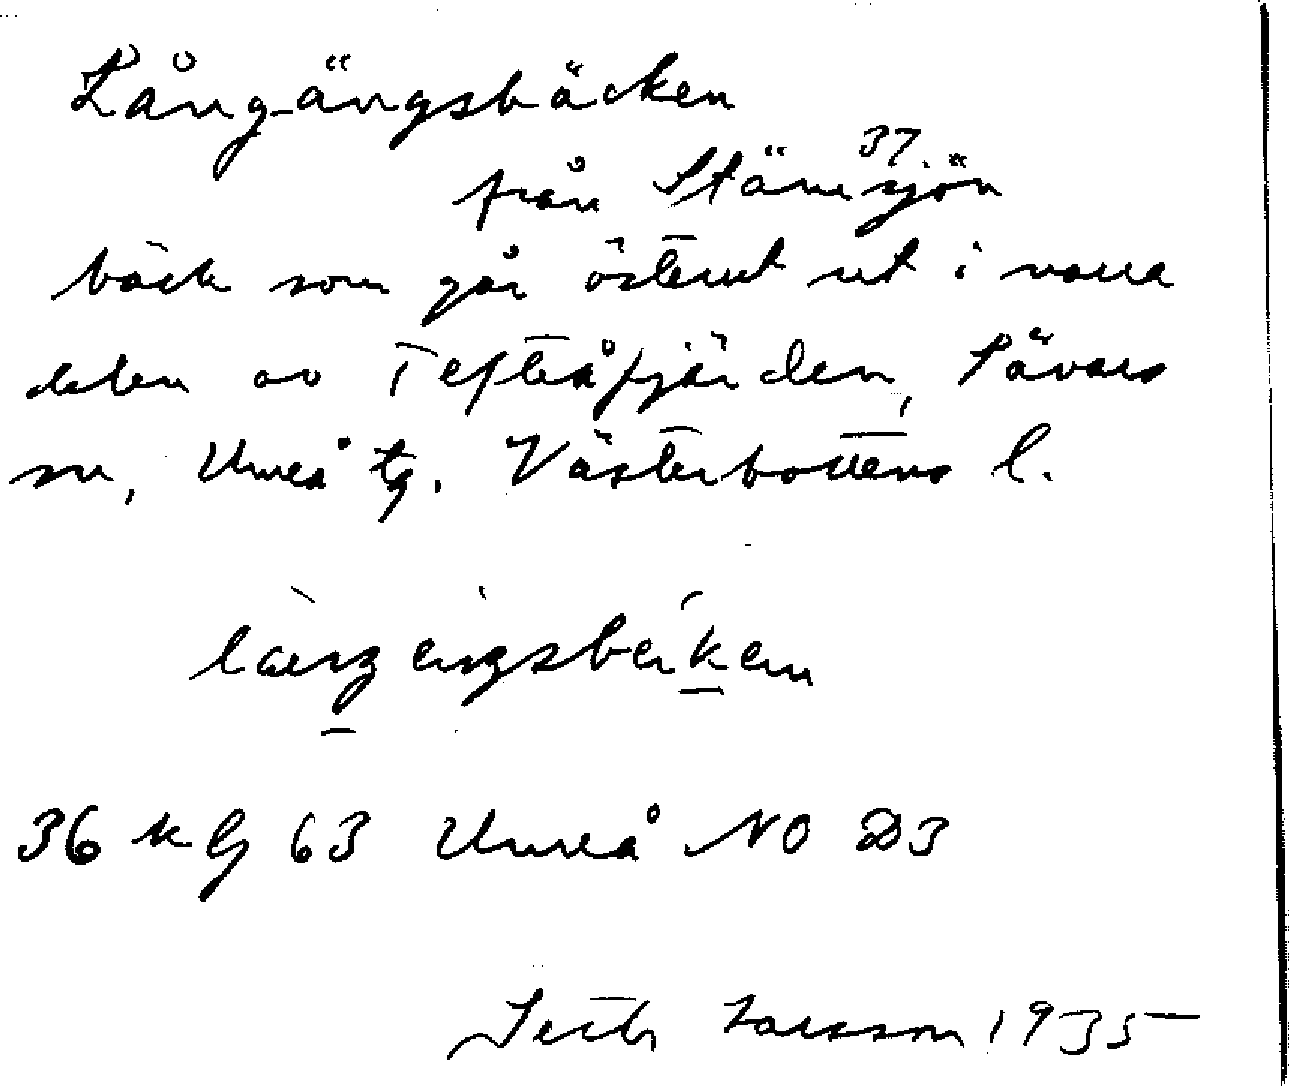 Långängsbäcken
37.
från Stämsjön
bäck som går österut ut i norra
delen av Tefteåfjärden, Sävars
sn, Umeå tg. Västerbottens l.
36 k G 63 Umeå NO D3
Seth Larsson 1935